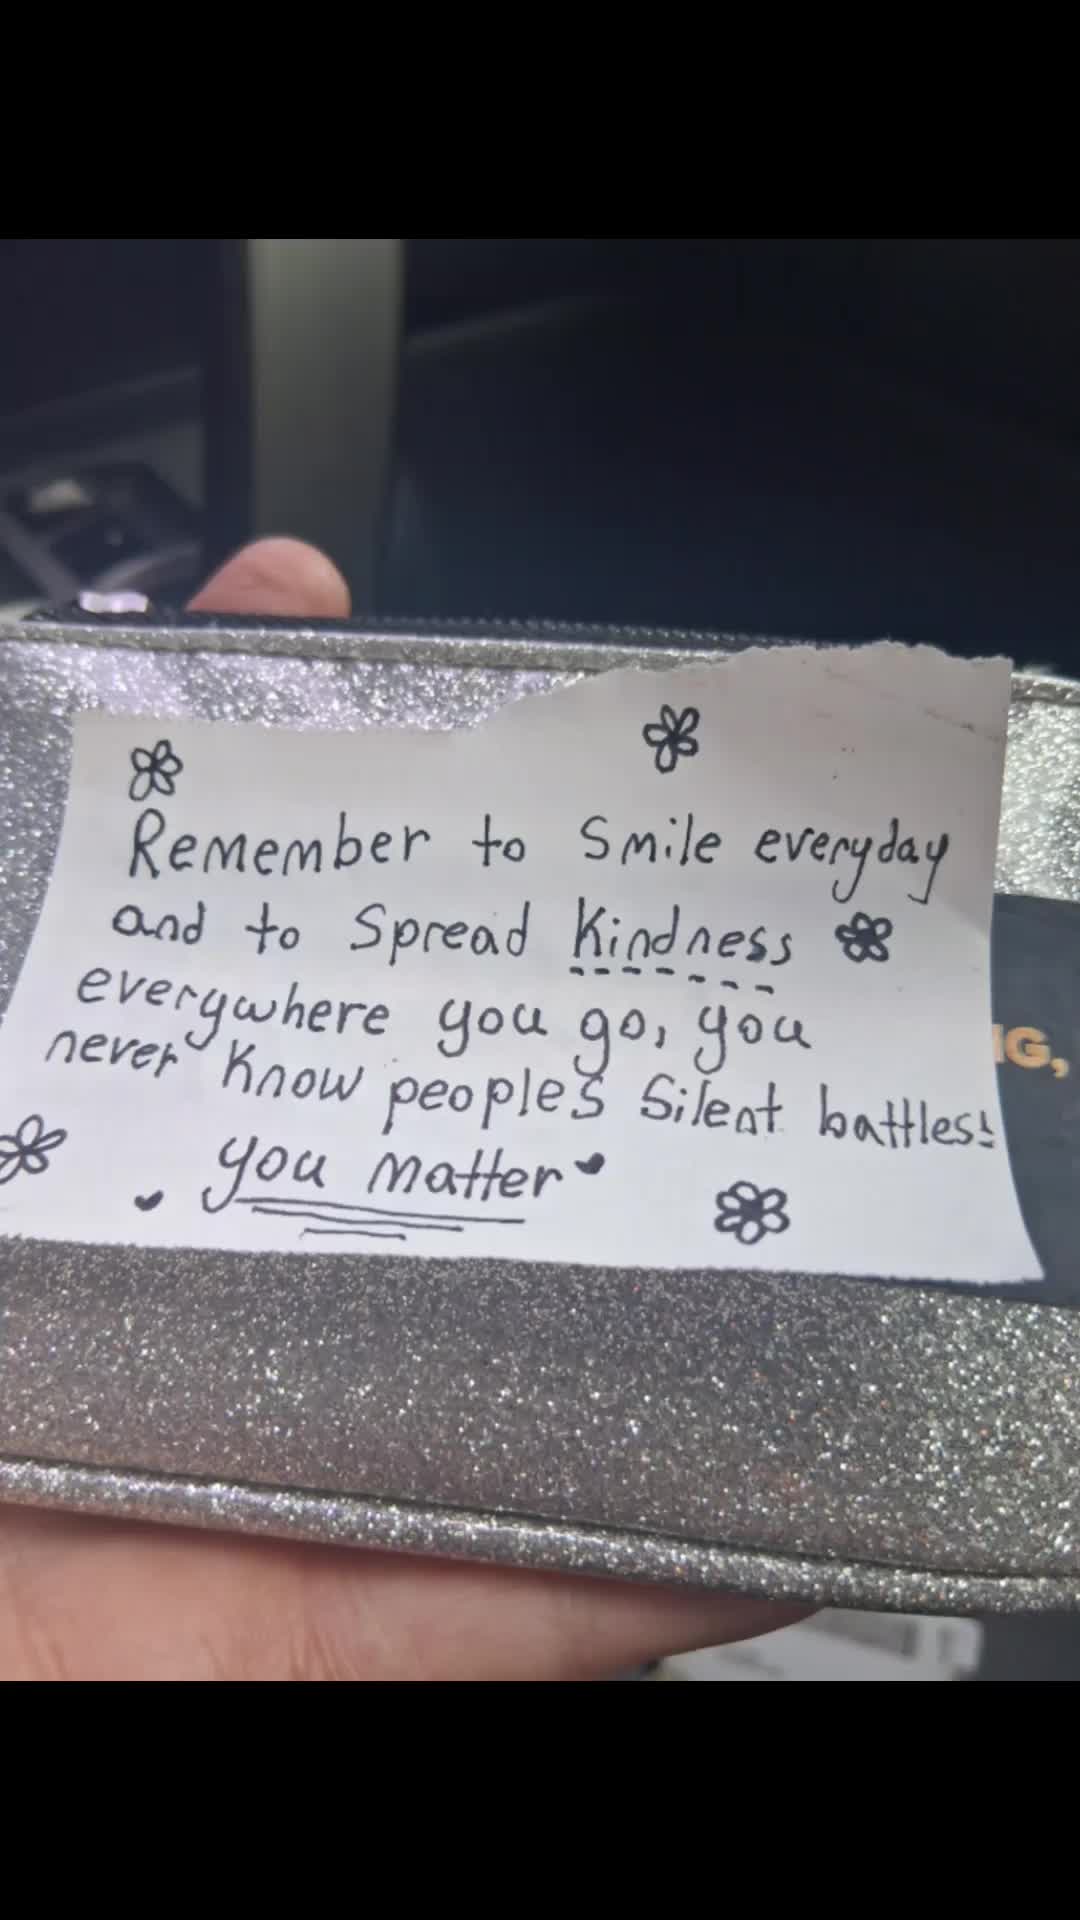 Remember to Smile everyday
and to Spread Kindness
everywhere you go, you
never Know people's Silent battles!
you matter
IG,